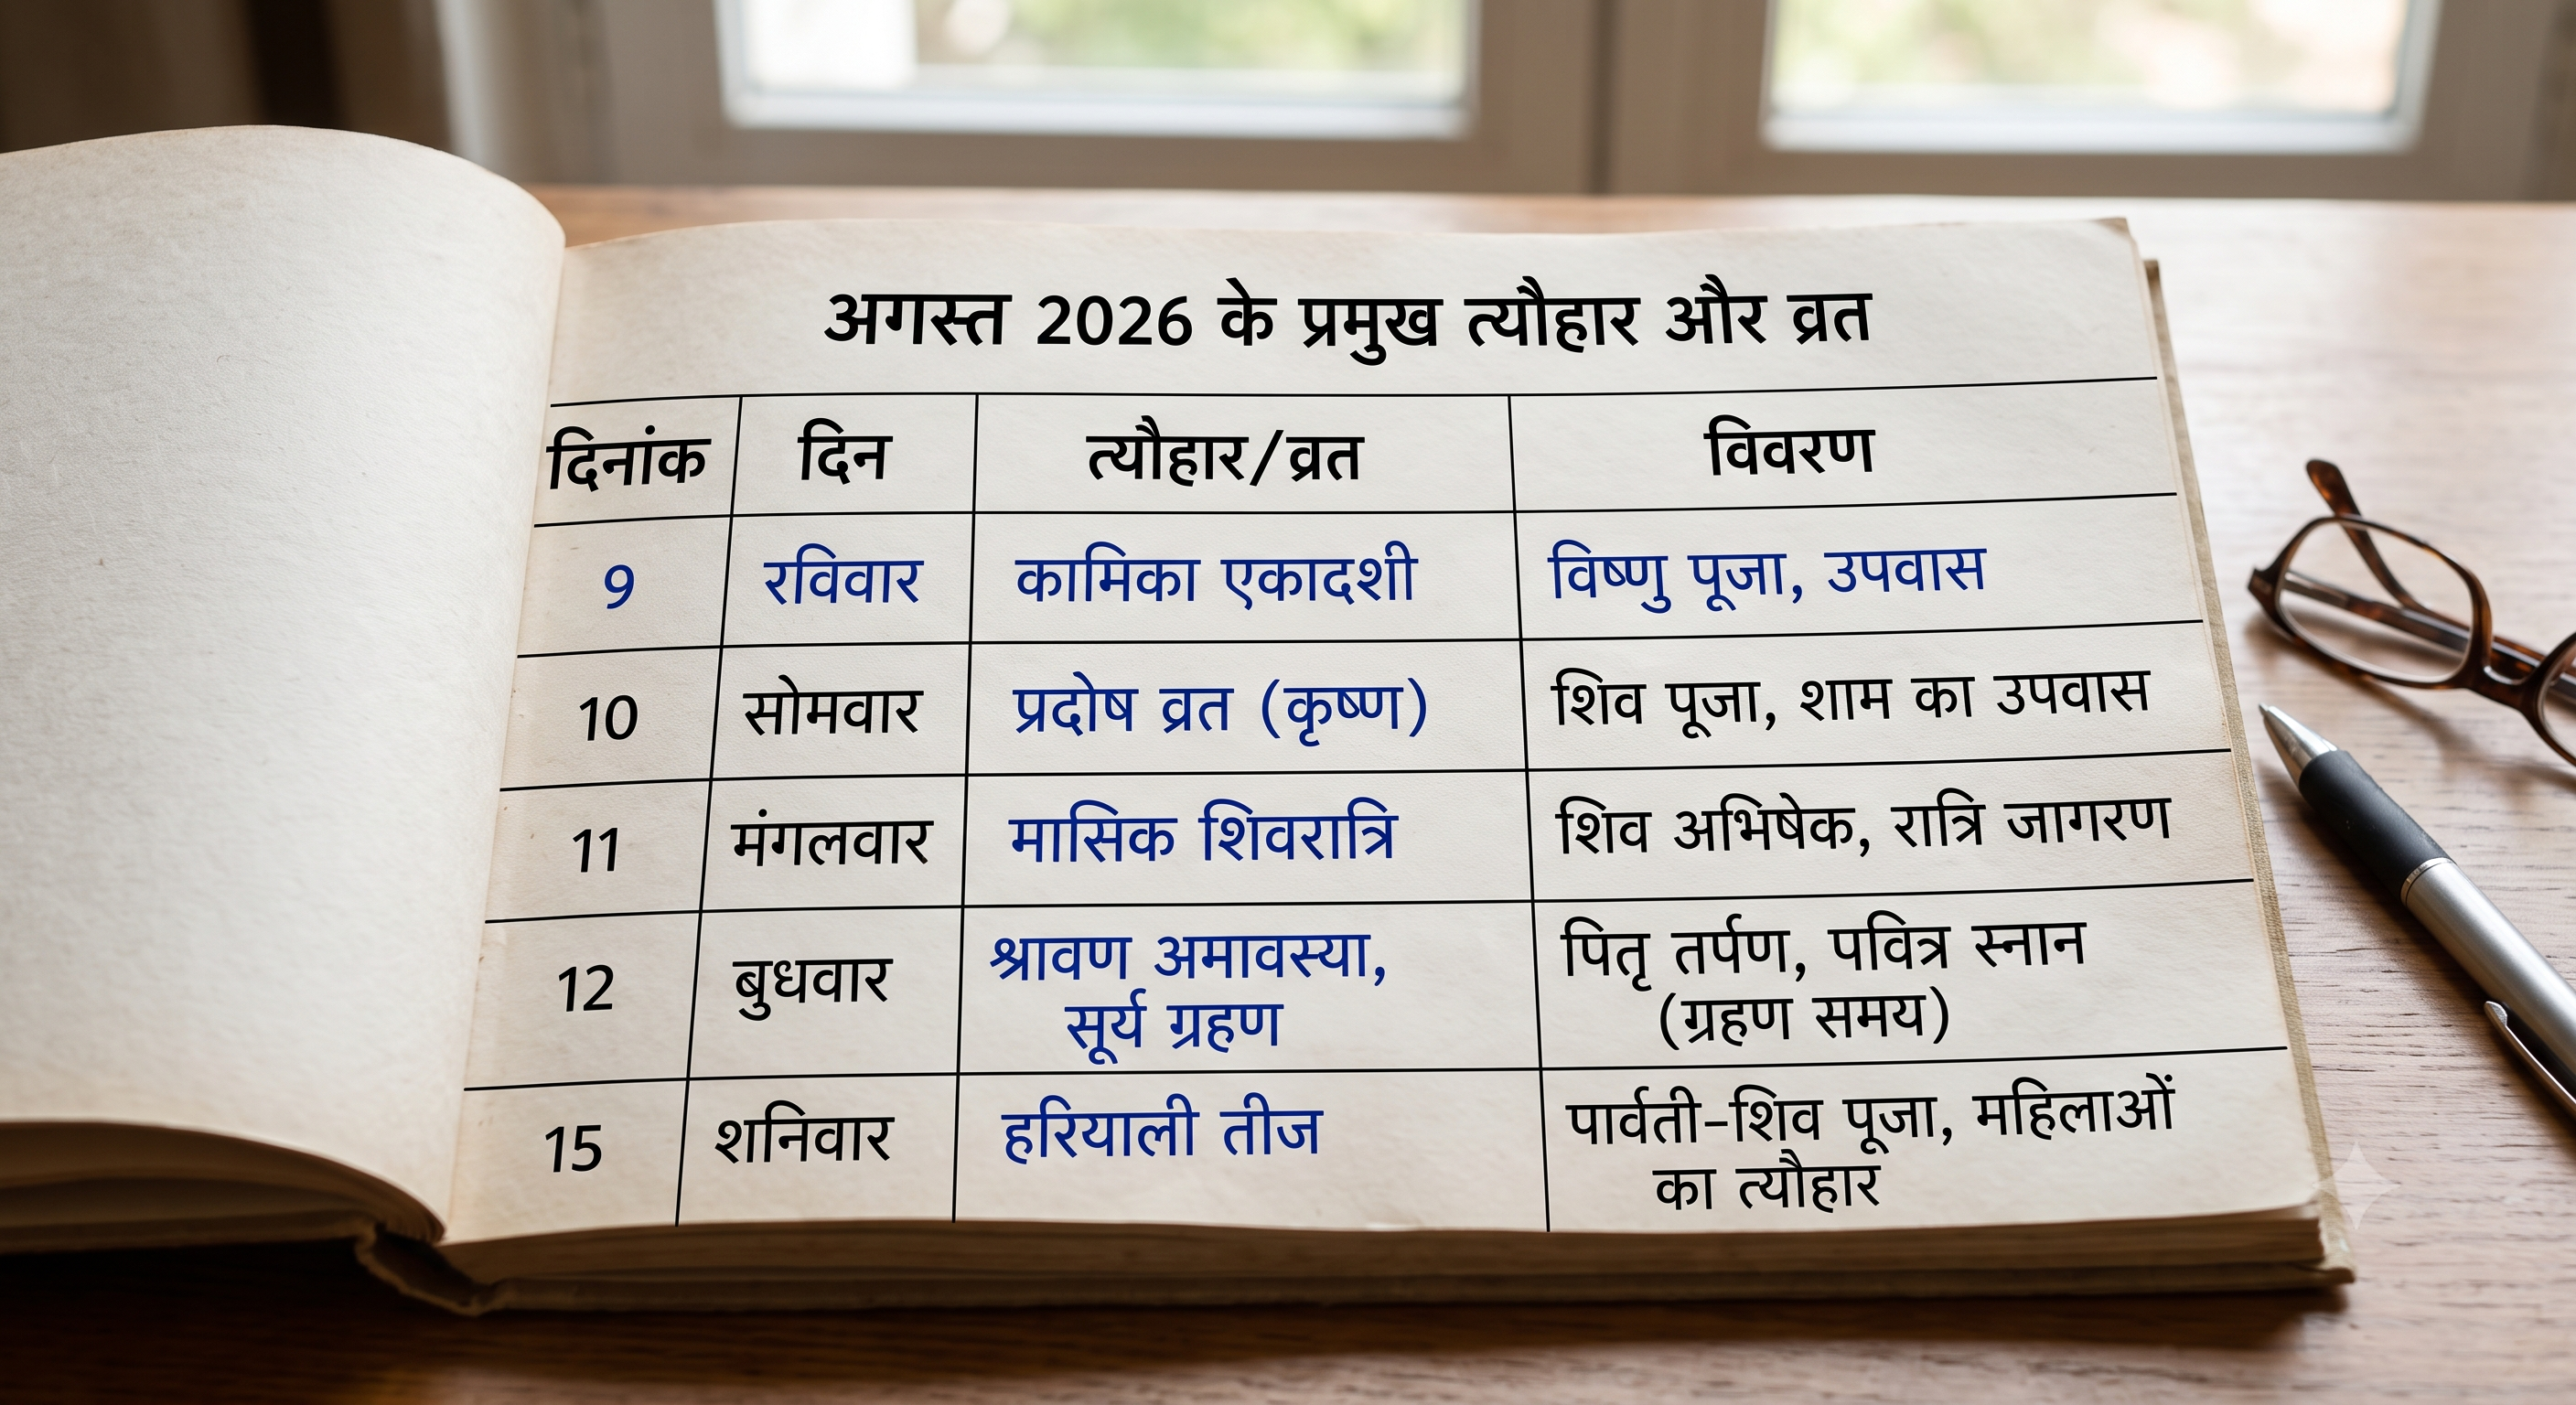 अगस्त 2026 के प्रमुख त्यौहार और व्रत
दिनांक दिन त्यौहार/व्रत विवरण
9 रविवार कामिका एकादशी विष्णु पूजा, उपवास
10 सोमवार प्रदोष व्रत (कृष्ण) शिव पूजा, शाम का उपवास
11 मंगलवार मासिक शिवरात्रि शिव अभिषेक, रात्रि जागरण
12 बुधवार श्रावण अमावस्या, पितृ तर्पण, पवित्र स्नान
सूर्य ग्रहण (ग्रहण समय)
15 शनिवार हरियाली तीज पार्वती-शिव पूजा, महिलाओं
का त्यौहार